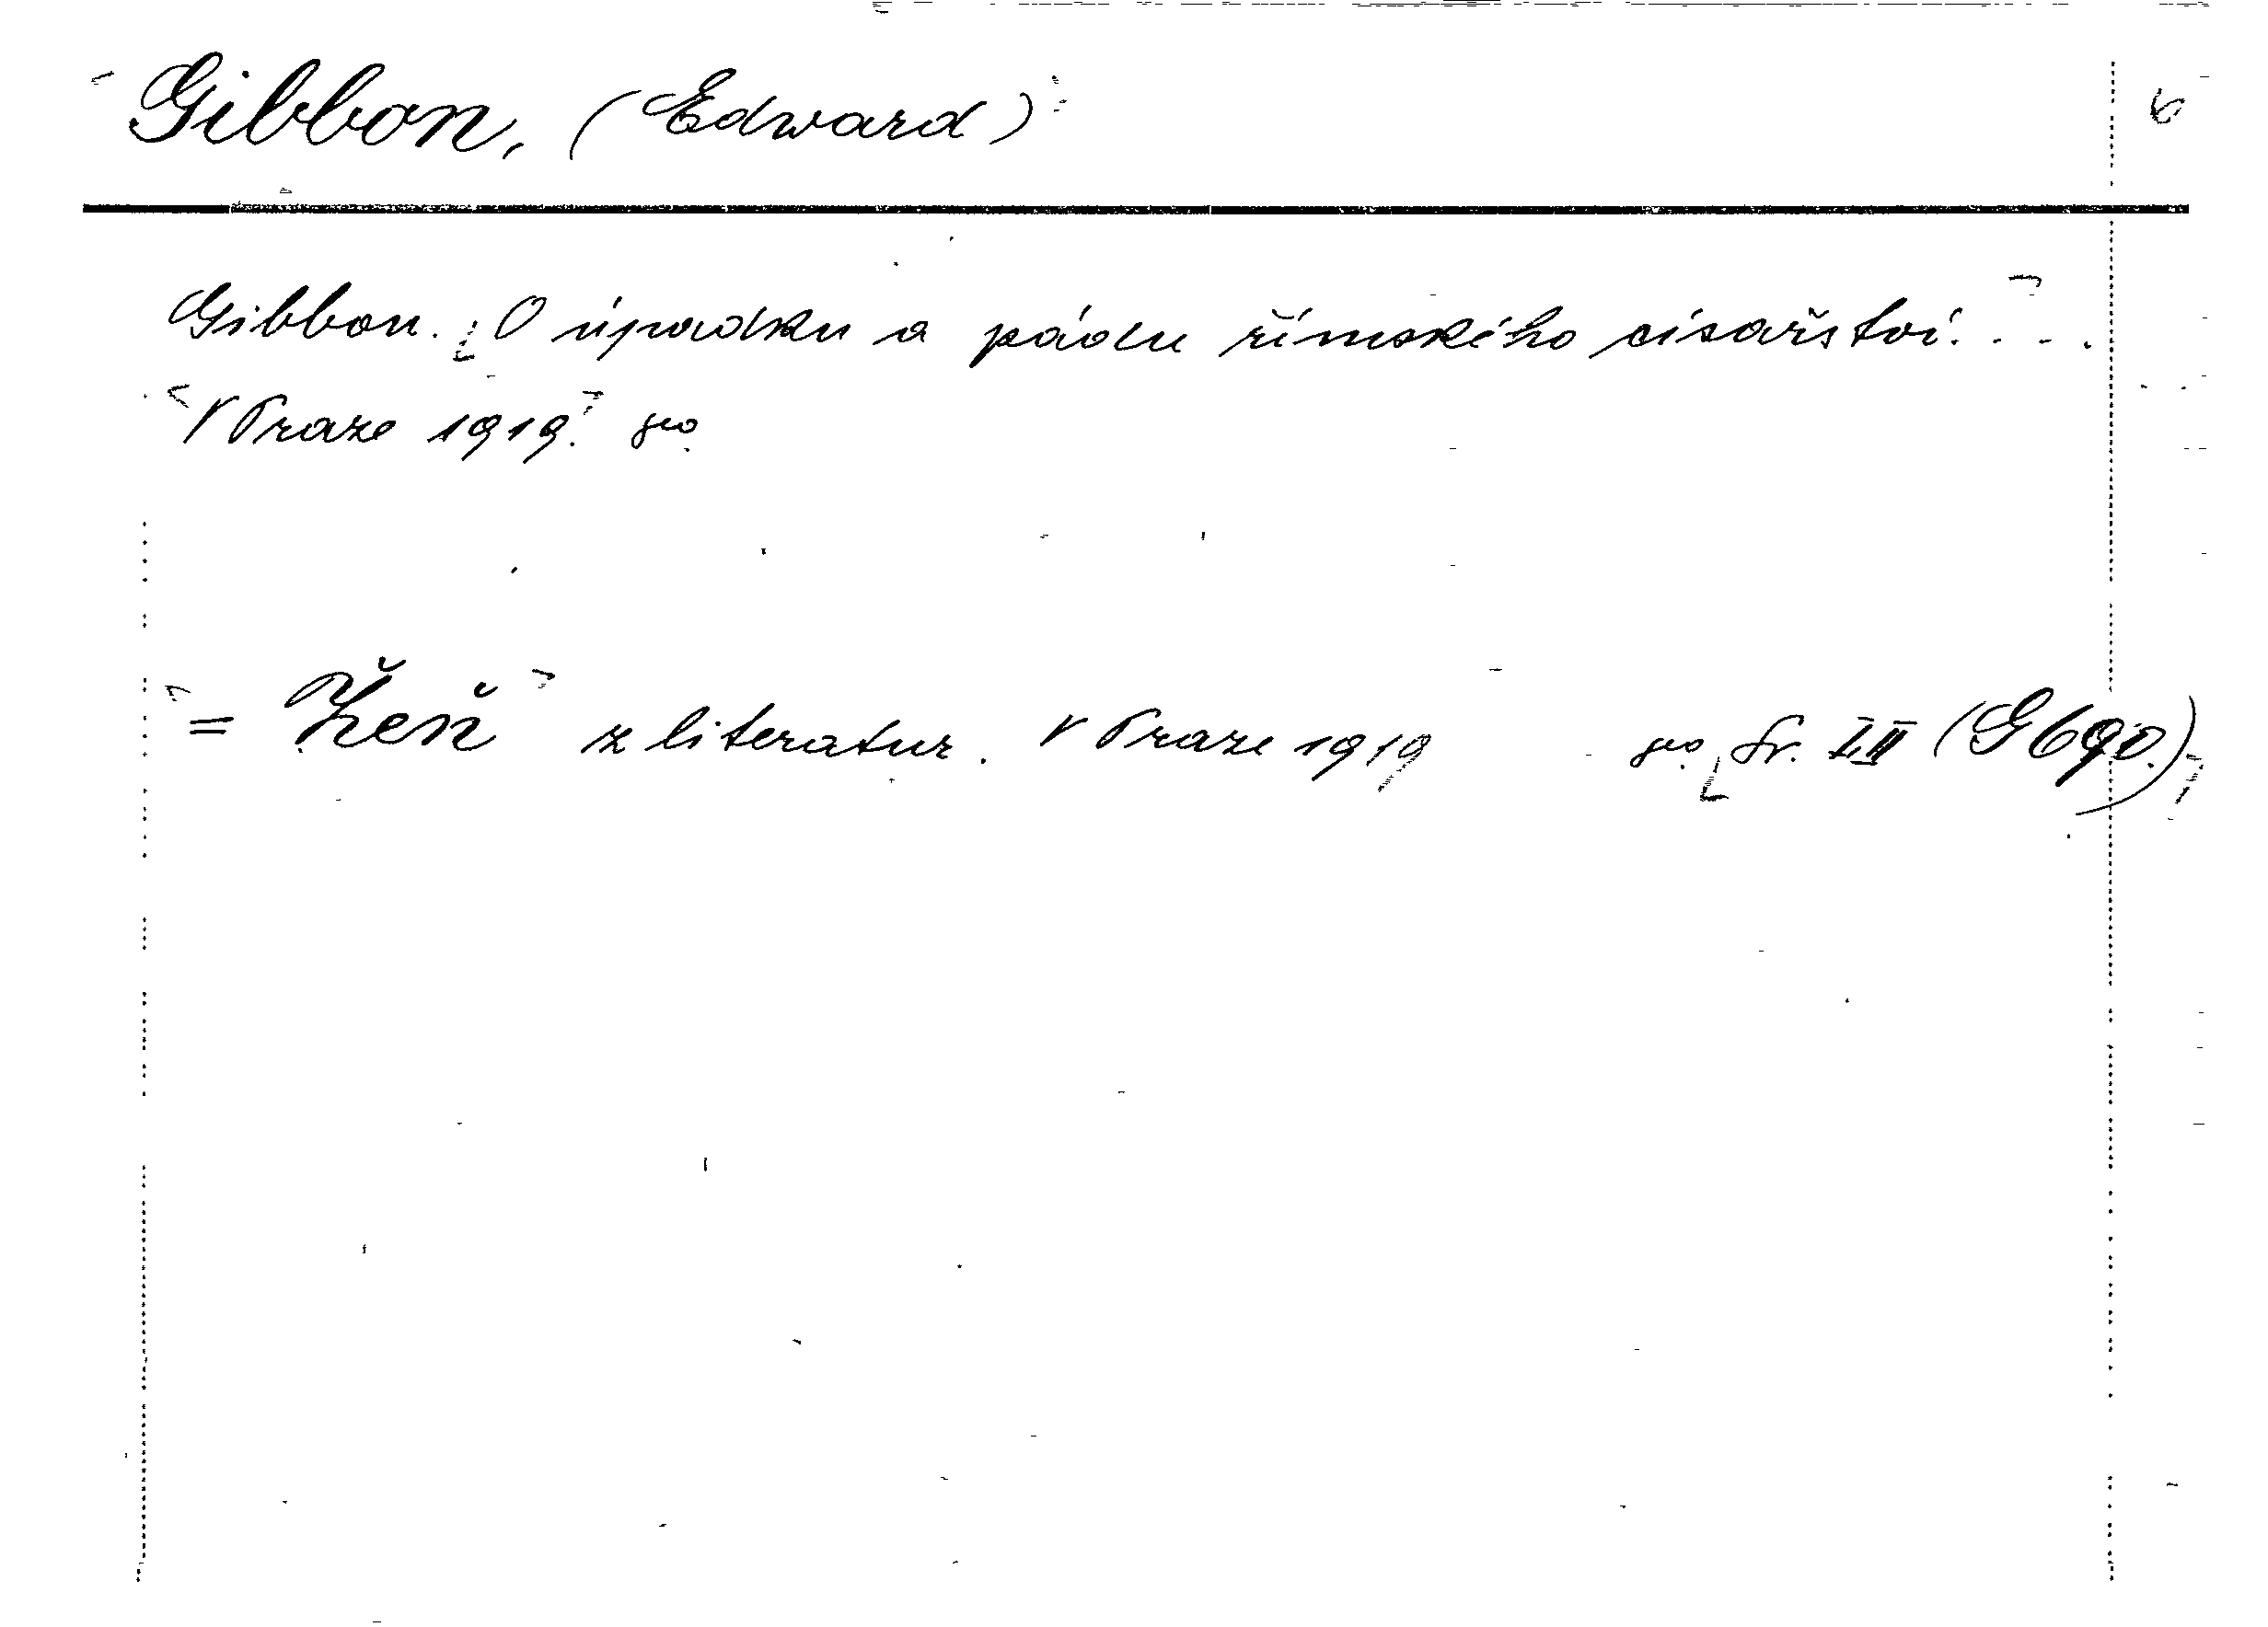 Gibbon, (Edward) 6
Gibbon. O úpadku a pádu římského císařství. . . .
V Praze 1919. 8o.
= Žeň z literatur. V Praze 1919 8o. Sv. III (G 690.)